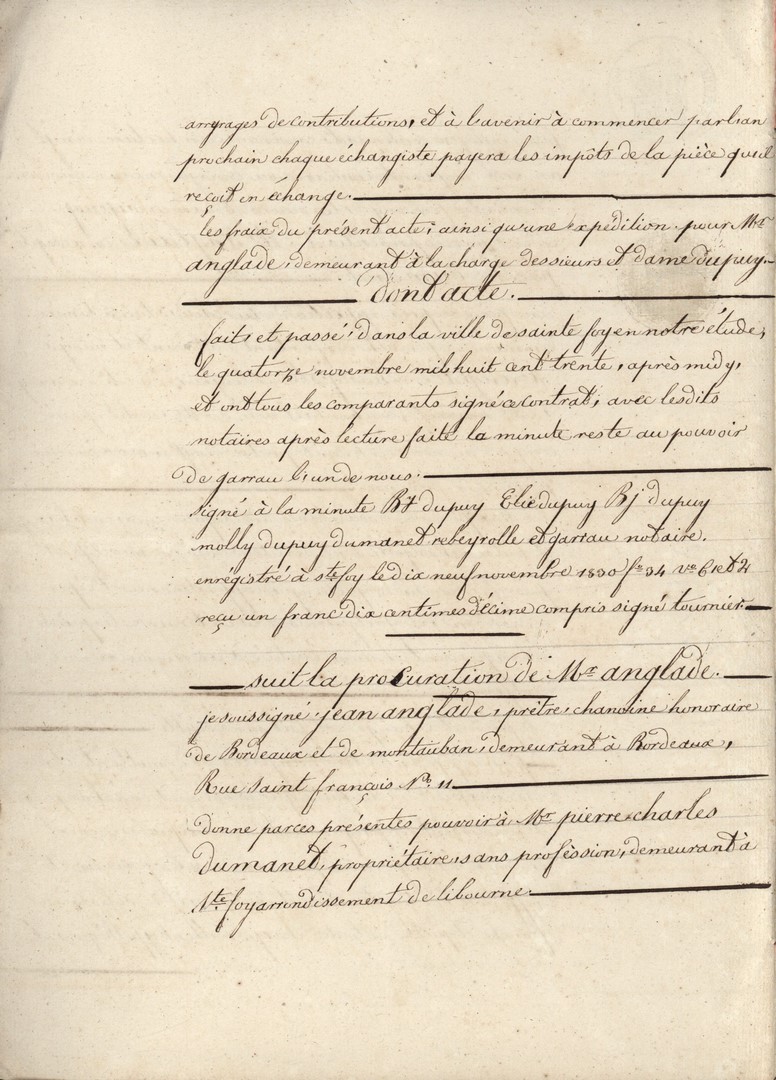 arrerages de contributions, et à l'avenir à commencer par l'an
prochain chaque échangiste payera les impôts de la pièce qu'il
reçoit en échange.
les fraix du présent acte, ainsi qu'une expédition pour Mr
anglade, demeurant à la charge des sieurs et dame dupuy.
Dont acte.
faits et passé, dans la ville de sainte foy en notre étude,
le quatorze novembre mil huit cent trente, après midy,
et ont tous les comparants signé ce contrat, avec lesdits
notaires après lecture faite la minute reste au pouvoir
de garrau l'un de nous.
signé à la minute Bt dupuy Elie dupuy Bj dupuy
molly dupuy dumanet rebeyrolle et garrau notaire.
enrégistré à ste foy le dix neuf novembre 1830 fo 34 vo C 1 et 2
reçu un franc dix centimes décime compris signé tournier.
suit la procuration de Mr anglade.
je soussigné, jean anglade, prêtre, chanoine honoraire
de Bordeaux et de montauban, demeurant à Bordeaux,
Rue Saint françois No. 11
donne par ces présentes pouvoir à Mr pierre charles
dumanet, propriétaire, sans profession, demeurant à
Ste foy arrondissement de libourne.